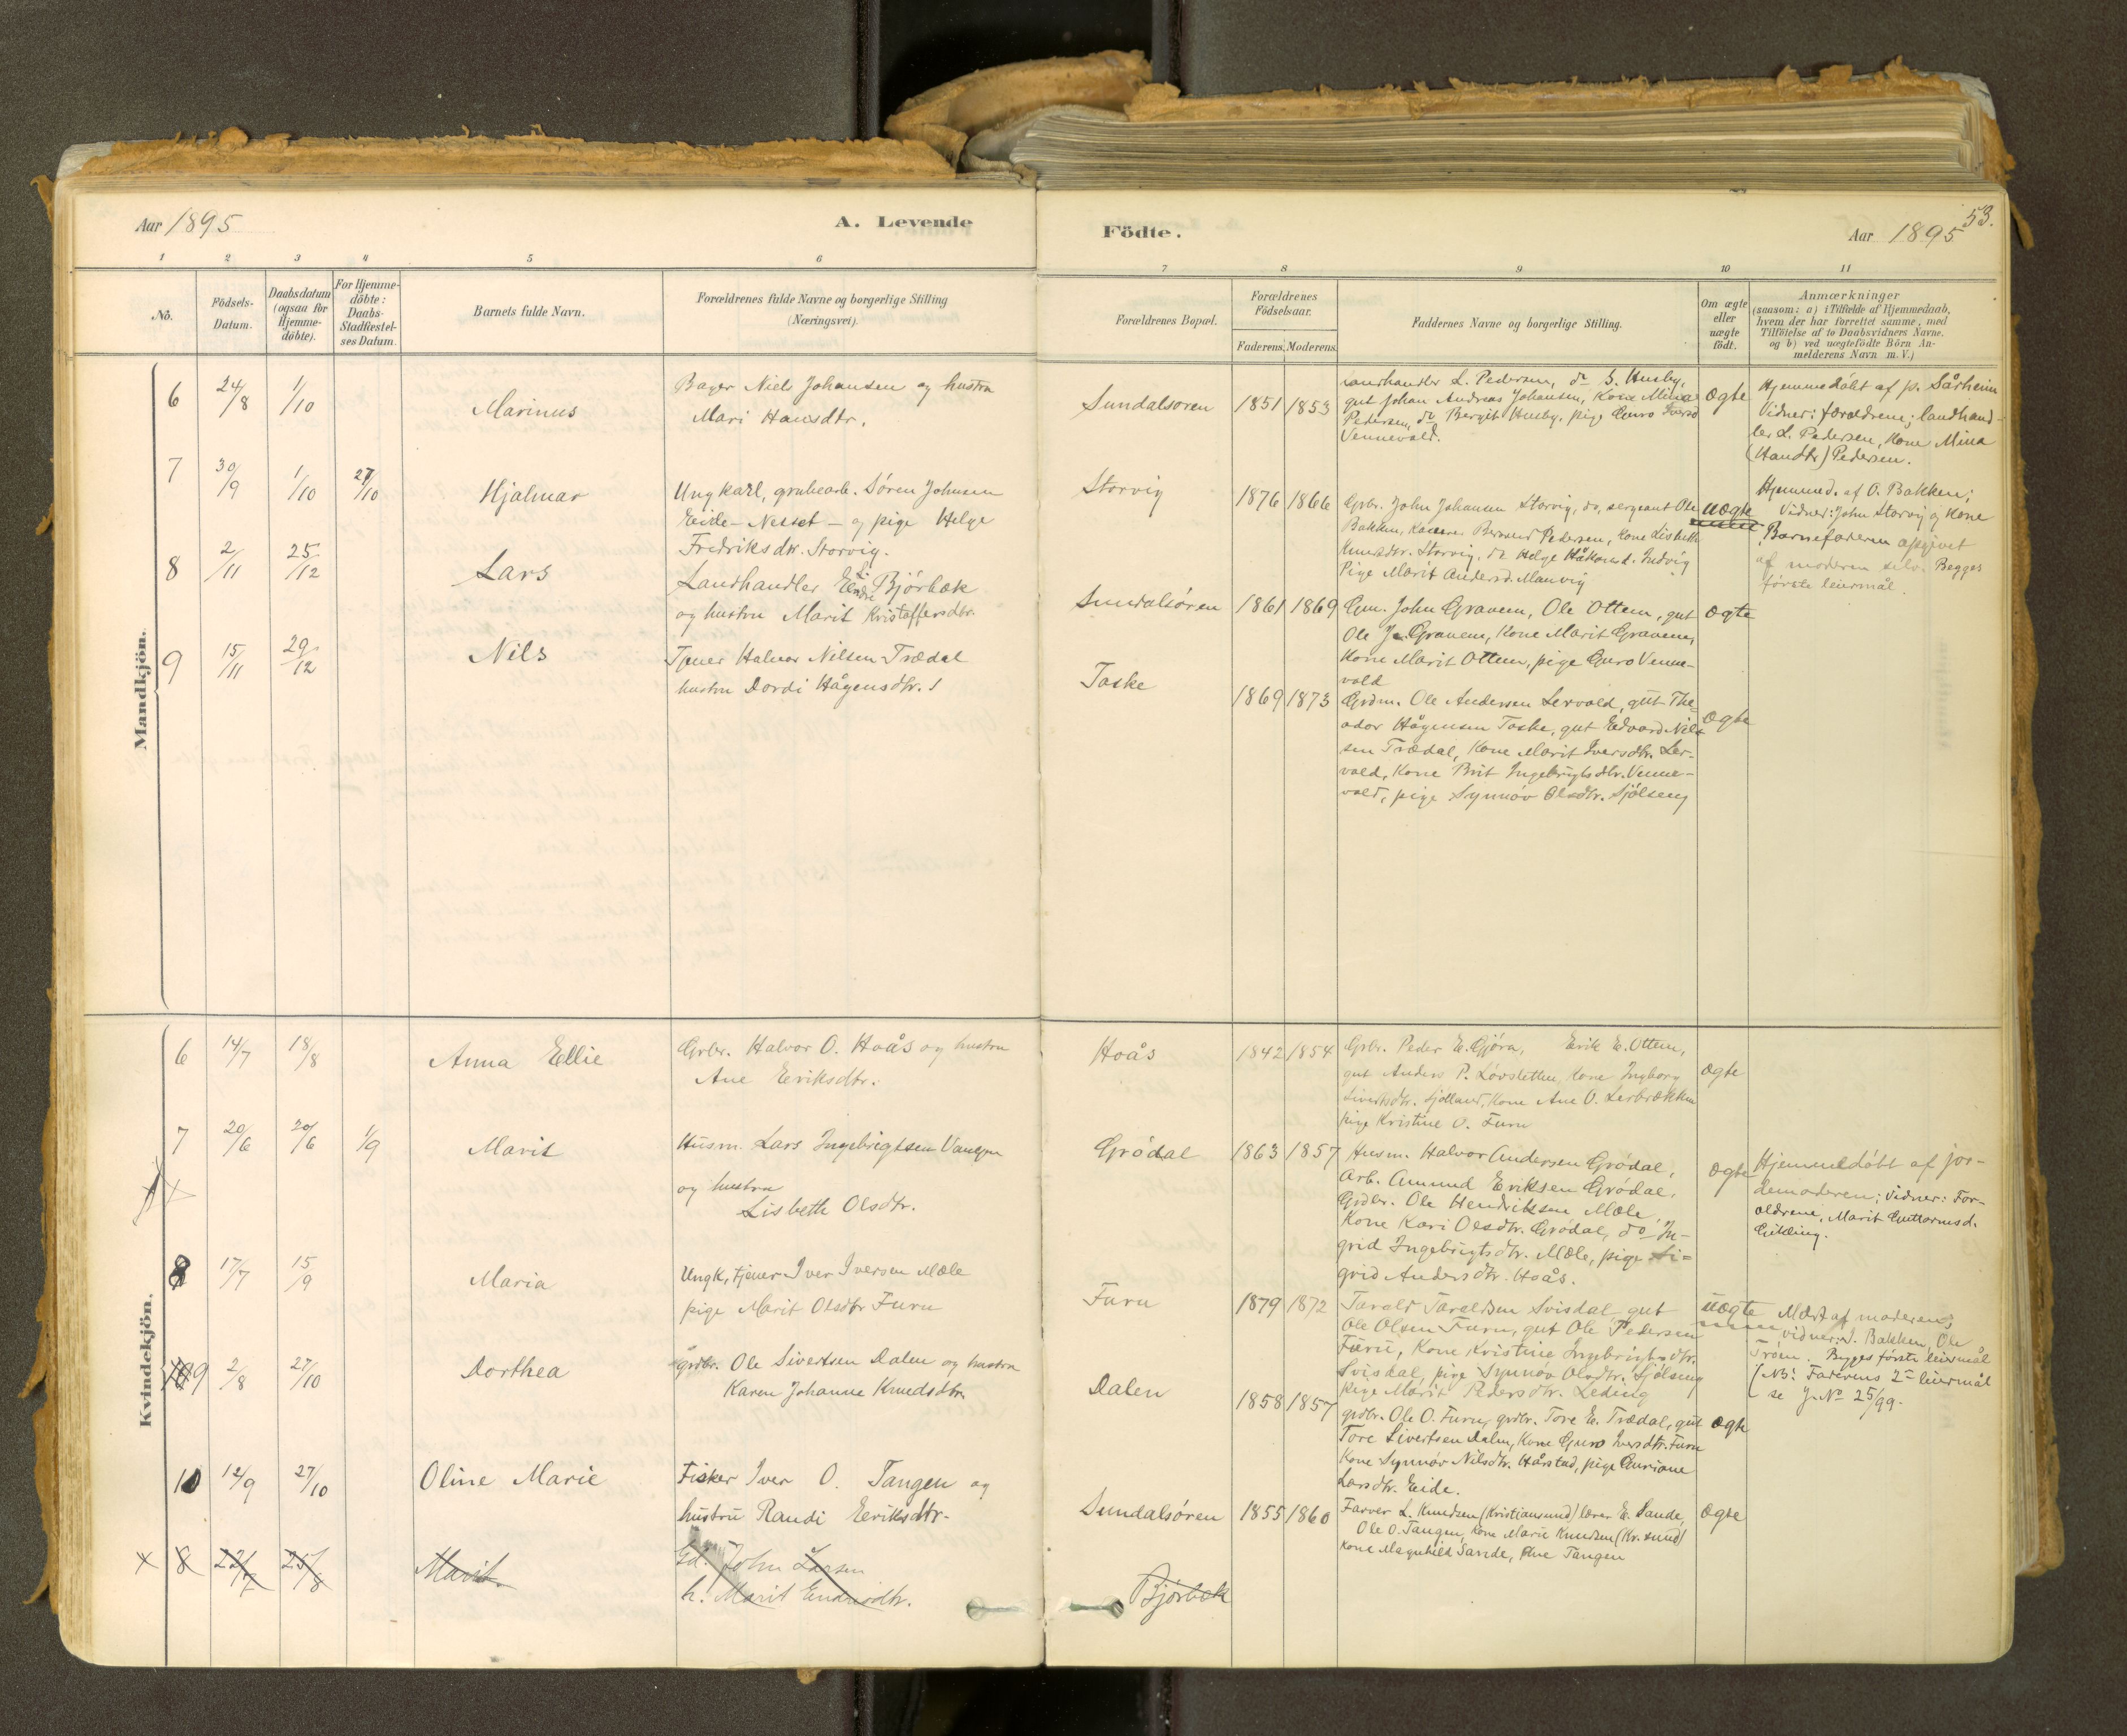 Aar 1895
A. Levende
Födte.
Aar 1895
53.
1 2 3 4 5 6 7 8 9 10 11
No.
Födsels-
Datum.
Daabsdatum
(ogsaa for
Hjemme-
döbte).
For Hjemme-
döbte:
Daabs-
Stadfiestel-
ses Datum.
Barnets fulde Navn.
Forældrenes fulde Navne og borgerlige Stilling
(Næringsvei).
Forældrenes Bopæl.
Forældrenes
Födselsaar.
Faderens. Moderens.
Faddernes Navne og borgerlige Stilling.
Om ægte
eller
uægte
födt.
Anmærkninger
(saasom: a) i Tilfælde af Hjemmedaab,
hvem der har forrettet samme, med
Tilföielse af to Daabsvidners Navne.
og b) ved uægtefödte Börn An-
melderens Navn m. V.)
Mandkjön.
6 24/8 1/10
Marinus
Bager Niels Johansen og hustru
Mari Hansdtr.
Sundalsøren 1851 1853
Landhandler L. Pedersen, do S. Husby,
gut Johan Andreas Johansen, Kone Mina
Pedersen, do Bergit Husby, pige Guro Iversd
Vennevold.
Ægte
Hjemmedøbt af p. Sårheim
Vidner: forældrene; landhand-
ler L. Pedersen, Kone Mina
(Handtr) Pedersen.
7 30/9 1/10 27/10
Hjalmar
Ungkarl, grubearb. Søren Johnsen
Eide-Nesset - og pige Helge
Fredriksdtr. Storvig.
Storvig
1876 1866
Grbr. John Johansen Storvig, do, sergeant Ole
Bakken, Bernard Pedersen, Kone Lisbeth
Knudsdtr. Storvig, do Helge Håkonsd. Indvig
Pige Marit Andersd. Manvig
Uægte
Hjemmed. af O. Bakken;
Vidner: John Storvig og Kone
Barnefaderen opgivet
af moderen selv. Begges
første leiermål.
8 2/11 25/12
Lars
Landhandler Endre L. Bjørbæk
og hustru Marit Kristoffersdtr.
Sundalsøren 1861 1869
Gm. John Gravem, Ole Ottem, gut
Ole J. Gravem, Kone Marit Gravem,
Kone Marit Ottem, pige Guro Venne-
vold
Ægte
9 15/11 29/12
Nils
Tjener Halvor Nilsen Trædal
hustru Dordi Hågensdtr.
Taske
1869 1873
Grdm. Ole Andersen Lervold, gut The-
odor Hågensen Taske, gut Edvard Nil-
sen Trædal, Kone Marit Iversdtr. Ler-
vold, Kone Brit Ingebrigtsdtr. Venne-
vold, pige Synnøv Olsdtr. Sjølseng
Ægte
Kvindekjön.
6 14/7 18/8
Anna Ellie
Grbr. Halvor O. Hoås og hustru
Ane Eriksdtr.
Hoås
1842 1854
Grbr. Peder E. Gjøra, Erik E. Ottem,
gut Anders P. Løvsletten, Kone Ingborg
Sivertsdtr. Sjølland, Kone Ane O. Lerbrækken
pige Kristine O. Furu
Ægte
7 20/6 20/6 1/9
Marit
Husm. Lars Ingebrigtsen
og hustru
Lisbeth Olsdtr.
Grødal 1863 1857
Husm. Halvor Andersen Grødal,
Arb. Amund Eriksen Grødal,
Grdbr. Ole Hendriksen Mæle
Kone Kari Olsdtr. Grødal, do In-
grid Ingebrigtsdtr. Mæle, pige Si-
grid Andersdtr. Hoås.
Ægte
Hjemmedøbt af jor-
demoderen; vidner: For-
ældrene, Marit Guttormsd.
Gikling.
8 17/7 15/9
Maria
Ungk, tjener Iver Iversen Mæle
pige Marit Olsdtr Furu
Furu 1879 1872
Tarald Taraldsen Svisdal gut
Ole Olsen Furu, gut Ole Pedersen
Furu, Kone Kristine Ingebrigtsdtr.
Svisdal, pige Synnøv Olsdtr. Sjølseng
pige Marit Pedersdtr. Leding
Uægte
Mældt af moderen;
vidner: J. Bakken, Ole
Trøen. Begges første leiermål
(NB! Faderens 2det leiermål
se J. No 25/99.
9 2/8 27/10
Dorthea
grdbr. Ole Sivertsen Dalen og hustru
Karen Johanne Knudsdtr.
Dalen
1858 1857
grdbr. Ole O. Furu, grdbr. Tore E. Trædal, gut
Tore Sivertsen Dalen, Kone Guro Iversdtr. Furu
Kone Synnøv Nilsdtr. Hårstad, pige Guriane
Larsdtr. Eide.
Ægte
10 12/9 27/10
Oline Marie
Fisker Iver O. Tangen og
hustru Randi Eeriksdtr.
Sundalsøren 1855 1860
Farver L. Knudsen (Kristiansund) lærer E. Sande,
Ole O. Tangen, Kone Marie Knudsen (Kr.sund)
Kone Magnhild Sande, Ane Tangen
Ægte
x 8 22/7 25/8
Marit
Gd. John Larsen
h. Marit Endresdtr.
Bjørbæk